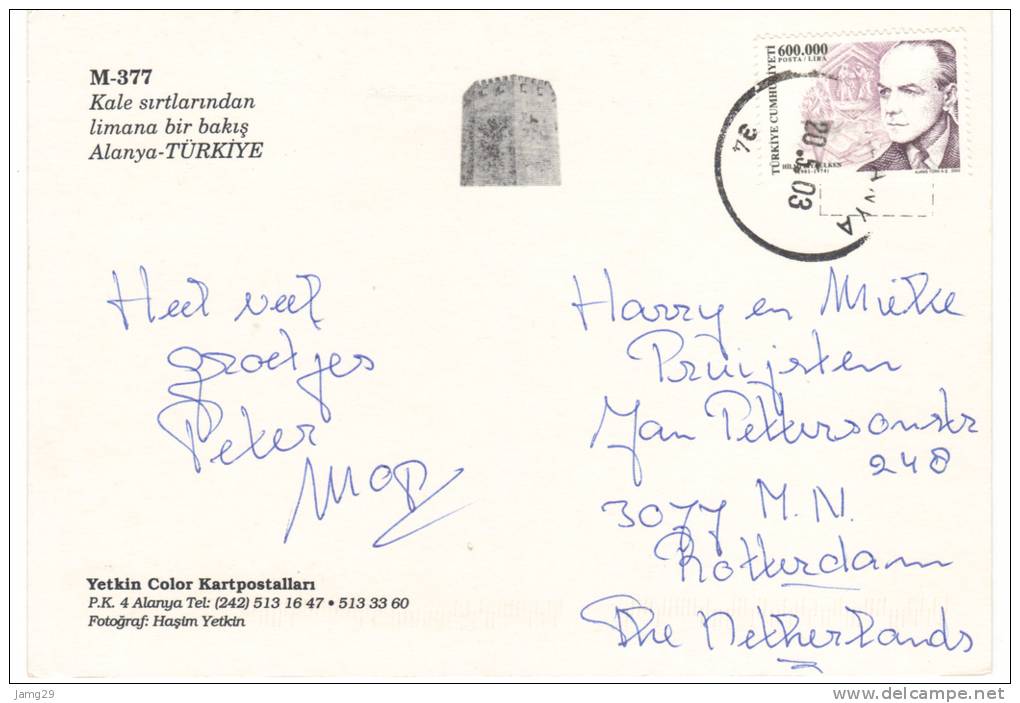 M-377
Kale sırtlarından
limana bir bakış
Alanya-TÜRKİYE
TÜRKİYE CUMHURİYETİ
600.000
POSTA / LİRA
34
20.5.03
Heel veel
groetjes
Peter
Harry en Mieke
Pruijsten
Jan Pettersonstr
248
3077 M.N.
Rotterdam
The Netherlands
Yetkin Color Kartpostalları
P.K. 4 Alanya Tel: (242) 513 16 47 • 513 33 60
Fotoğraf: Haşim Yetkin
Jamg29
delcampe.net